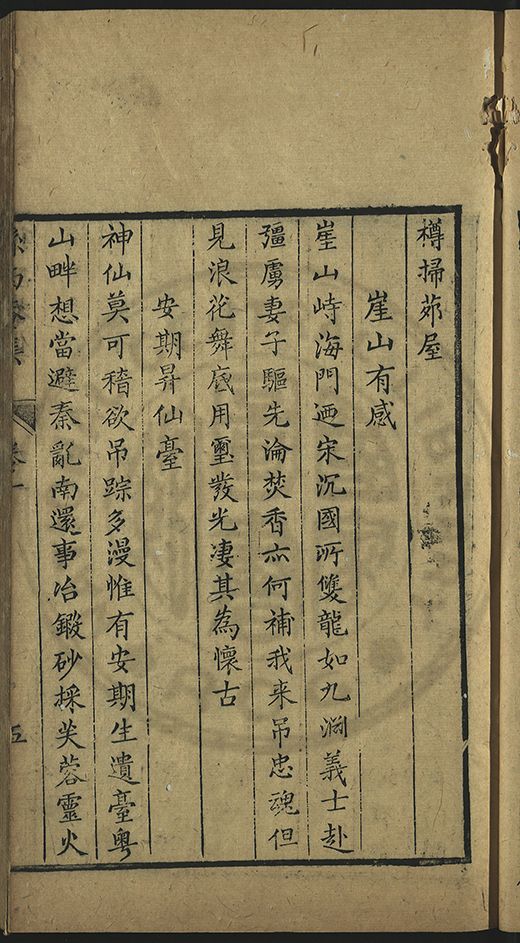 樽掃茆屋
崖山有感
崖山峙海門迺宋沉國所雙龍如九淵義士赴
彊虜妻子驅先淪焚香亦何補我来吊忠魂但
見浪花舞底用璽發光凄其為懷古
安期昇仙臺
神仙莫可稽欲吊踪多漫惟有安期生遺臺粤
山畔想當避秦亂南還事冶鍛砂採芙蓉靈火
卷一
五